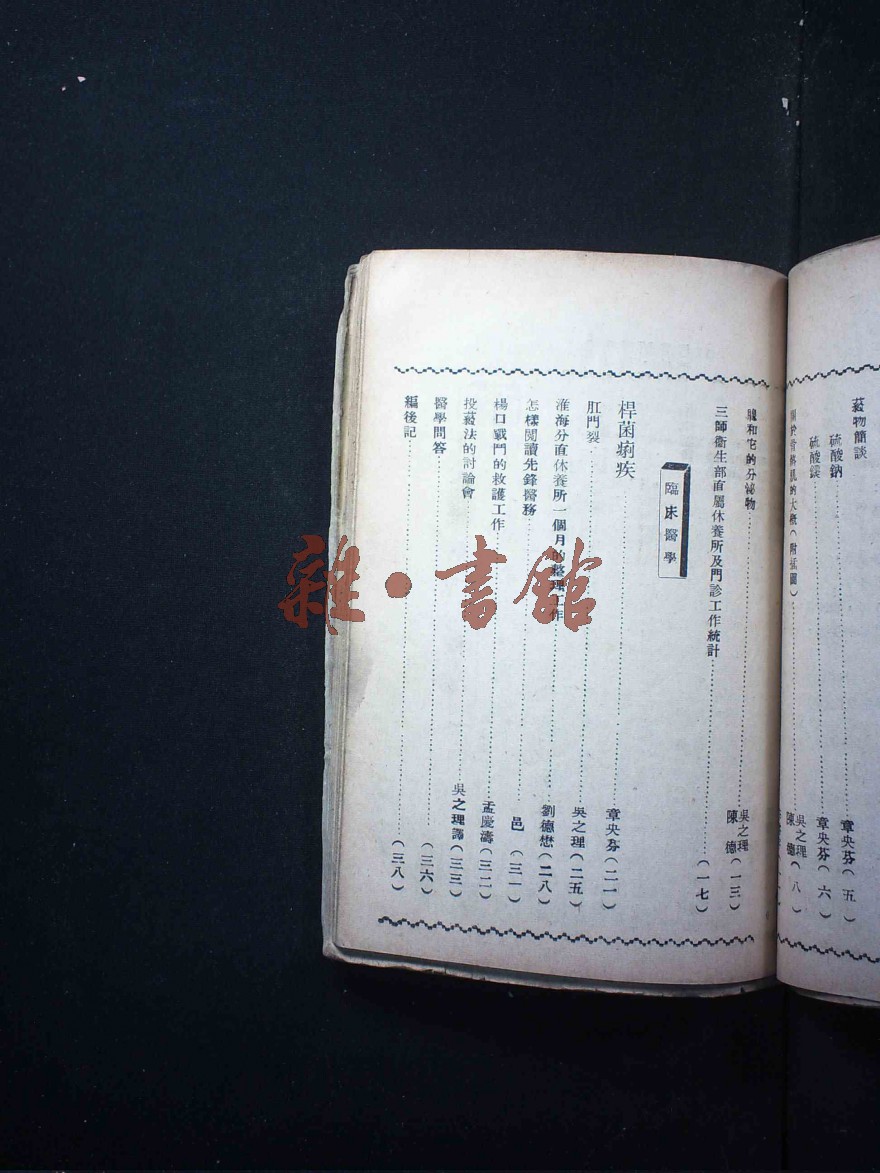 藥物簡談
硫酸鈉……章央芬(五)
硫酸鎂……章央芬(六)
的大概(附插圖)……吳之理 陳德(八)
和它的分泌物……吳之理 陳德(一三)
三師衛生部直屬休養所及門診工作統計……(一七)
臨床醫學
桿菌痢疾……章央芬(二一)
肛門裂……吳之理(二五)
淮海分直休養所一個月的整理工作……劉德懋(二八)
怎樣閱讀先鋒醫務……邑(三一)
楊口戰鬥的救護工作……孟慶濤(三二)
投藥法的討論會……吳之理譯(三三)
醫學問答……(三六)
編後記……(三八)
雜·書館